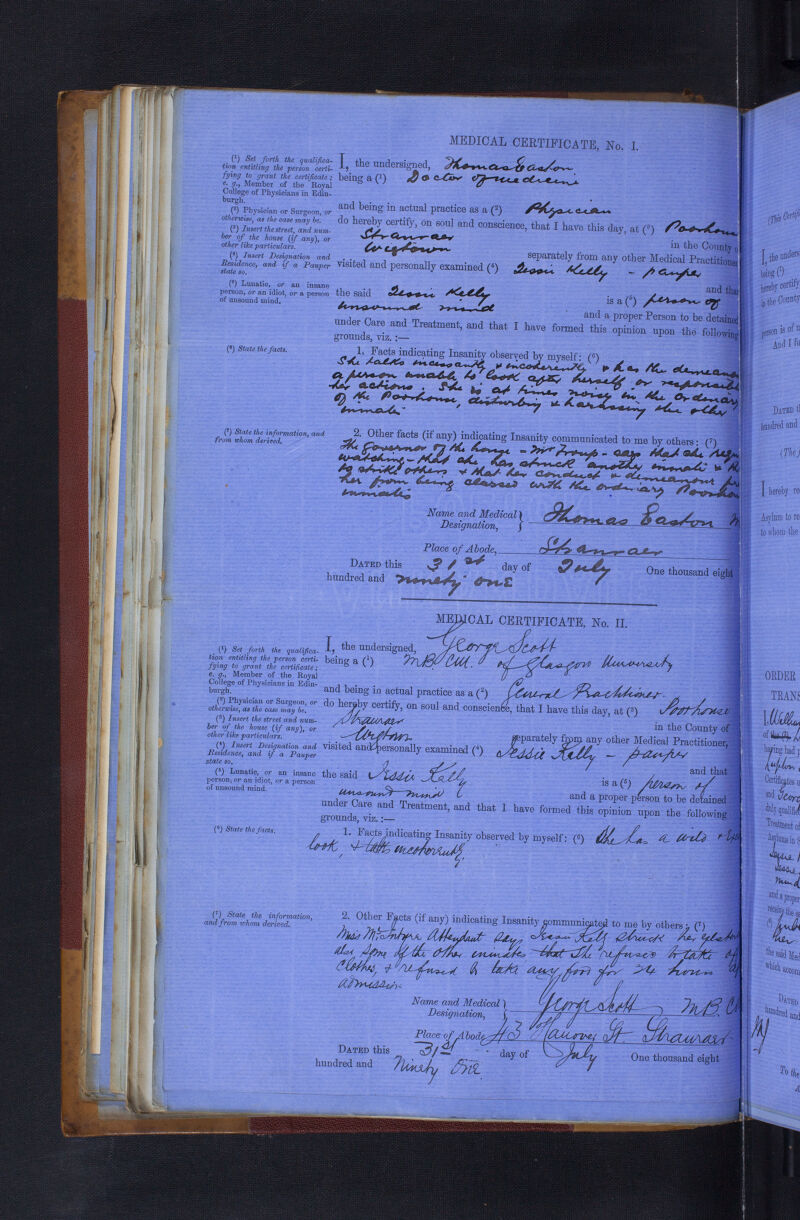 MEDICAL CERTIFICATE, No. I.
(¹) Set forth the qualifica-
tion entitling the person certi-
fying to grant the certificate;
e. g., Member of the Royal
College of Physicians in Edin-
burgh.
(²) Physician or Surgeon, or
otherwise, as the case may be.
(³) Insert the street, and num-
ber of the house (if any), or
other like particulars.
(⁴) Insert Designation and
Residence, and if a Pauper
state so.
(⁵) Lunatic, or an insane
person, or an idiot, or a person
of unsound mind.
(⁶) State the facts.
(⁷) State the information, and
from whom derived.
I, the undersigned, Thomas Easton
being a (¹) Doctor of medicine
and being in actual practice as a (²) Physician
do hereby certify, on soul and conscience, that I have this day, at (³) Poorhouse
Stranraer in the County o
Wigtown separately from any other Medical Practitioner
visited and personally examined (⁴) Jessie Kelly - pauper
and that
the said Jessie Kelly is a (⁵) person of
unsound mind and a proper Person to be detained
under Care and Treatment, and that I have formed this opinion upon the following
grounds, viz. :—
1. Facts indicating Insanity observed by myself: (⁶)
She talks incessantly & incoherently & has the demeano
a person unable to look after herself or responsibl
her actions. She is at times noisy in the ordinary
of the Poorhouse, disturbing & harassing the other
inmates
2. Other facts (if any) indicating Insanity communicated to me by others: (⁷)
The Governor of the house - Mr Troup - says that she requ
watching - that she has struck another inmate & th
to strike others & that her conduct & demeanour pre
her from being classed with the ordinary Poorhou
inmates
Name and Medical Designation, Thomas Easton M
Place of Abode, Stranraer
DATED this 31st day of July One thousand eight
hundred and ninety one
MEDICAL CERTIFICATE, No. II.
(¹) Set forth the qualifica-
tion entitling the person certi-
fying to grant the certificate;
e. g., Member of the Royal
College of Physicians in Edin-
burgh.
(²) Physician or Surgeon, or
otherwise, as the case may be.
(³) Insert the street and num-
ber of the house (if any), or
other like particulars.
(⁴) Insert Designation and
Residence, and if a Pauper
state so.
(⁵) Lunatic, or an insane
person, or an idiot, or a person
of unsound mind.
(⁶) State the facts.
(⁷) State the information,
and from whom derived.
I, the undersigned, George Scott
being a (¹) M.B. C.M. of Glasgow University
and being in actual practice as a (²) General Practitioner.
do hereby certify, on soul and conscience, that I have this day, at (³) Poorhouse
Stranraer in the County of
Wigtown separately from any other Medical Practitioner,
visited and personally examined (⁴) Jessie Kelly - pauper
and that
the said Jessie Kelly is a (⁵) person of
unsound mind and a proper person to be detained
under Care and Treatment, and that I have formed this opinion upon the following
grounds, viz. :—
1. Facts indicating Insanity observed by myself: (⁶) She has a wild &
look, & talks incoherently.
2. Other Facts (if any) indicating Insanity communicated to me by others; (⁷)
Miss McIntyre Attendant says Jessie Kelly struck her
also some of the other inmates that she refuses to take of
clothes, & refused to take any food for 24 hours a
admission
Name and Medical Designation, George Scott M.B. C
Place of Abode 43 Hanover St. Stranraer
DATED this 31st day of July One thousand eight
hundred and Ninety One.
I, the unders
being (¹)
hereby certify
the County
person is of u
And I fu
DATED t
hundred and
(The
I hereby re
Asylum to re
to whom the
ORDER
TRANS
having had
Certificates
and Georg
duly qualifie
Treatment o
Asylums in
Jessie
mind
and a proper
receive the s
her
the said Me
which accom
DATED
hundred and
To the